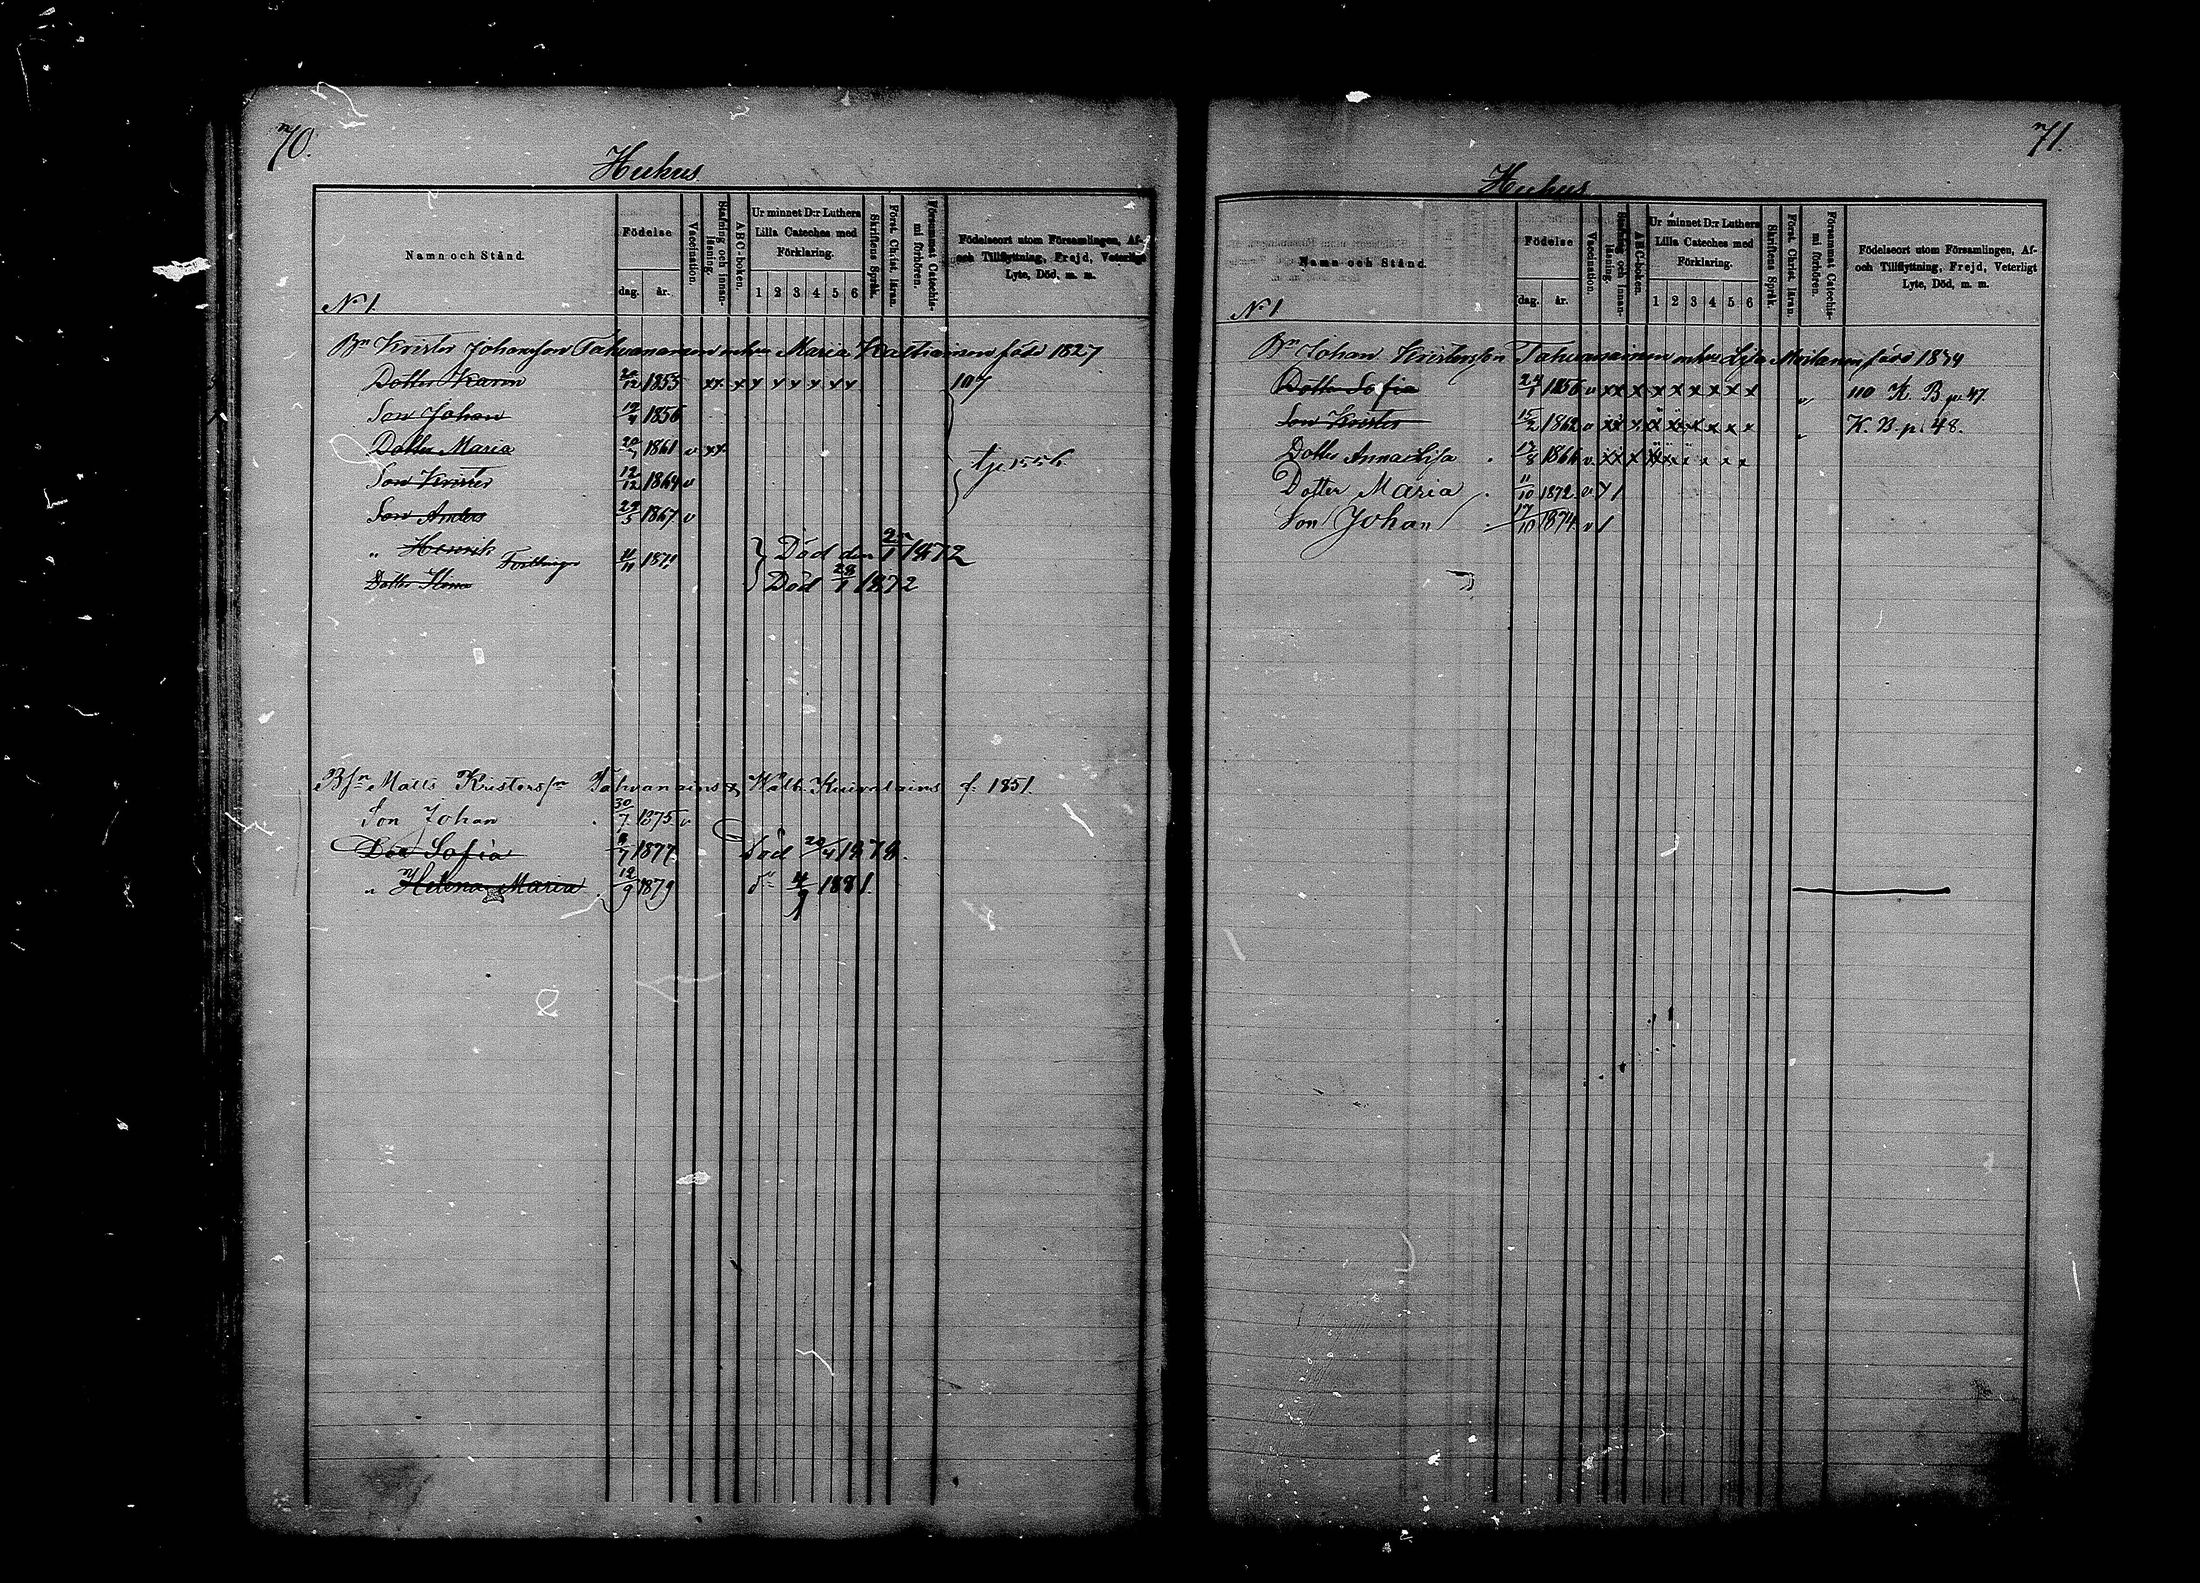 70.
Hukus
Namn och Stånd.
Födelse
dag. år.
Vaccination.
Stafning och Innanläsning.
ABC-boken.
Ur minnet D:r Luthers Lilla Cateches med Förklaring.
1 2 3 4 5 6
Skriftens Språk.
Först. Christ. läran.
Försummat Catechismi förhören.
Födelseort utom Församlingen, Af- och Tillflyttning, Frejd, Veterligt Lyte, Död, m. m.
N:o 1.
Bn Krister Johansson Tahvanainen Maria född 1827
Dotter Karin 20/12 1853 x x x x x x x x x 107
Son Johan 19/4 1856
Dotter Maria 1861 v x x
Son Krister 12/12 1864 v
Son Anders 29/5 1867 v
" Henrik Tvillingar 4/11 1871 Död den 1 1872
Dotter Död 28/1 1872
Bsn Matts Kristersn Tahvanainen f. 1851.
Son Johan 30/7 1875 v
Dotr Sofia 8/7 1877 Död 1878.
" Helena Maria 12/9 1879 dn 4/9 1881.
71.
Hukus
Namn och Stånd.
Födelse
dag. år.
Vaccination.
Stafning och Innanläsning.
ABC-boken.
Ur minnet D:r Luthers Lilla Cateches med Förklaring.
1 2 3 4 5 6
Skriftens Språk.
Först. Christ. läran.
Försummat Catechismi förhören.
Födelseort utom Församlingen, Af- och Tillflyttning, Frejd, Veterligt Lyte, Död, m. m.
N:o 1
Bn Johan Kristersson Tahvanainen Lisa född 1834
Dotter Sofia 1856 v x x x x x x x x x " 110 K. B. p. 47.
Son Krister 15/2 1862 v x x x x x x x x x " K. B. p. 48.
Dotter Anna Lisa 17/8 1866 v x x x x x x x x x
Dotter Maria 11/10 1872 v
Son Johan 17/10 1874 v